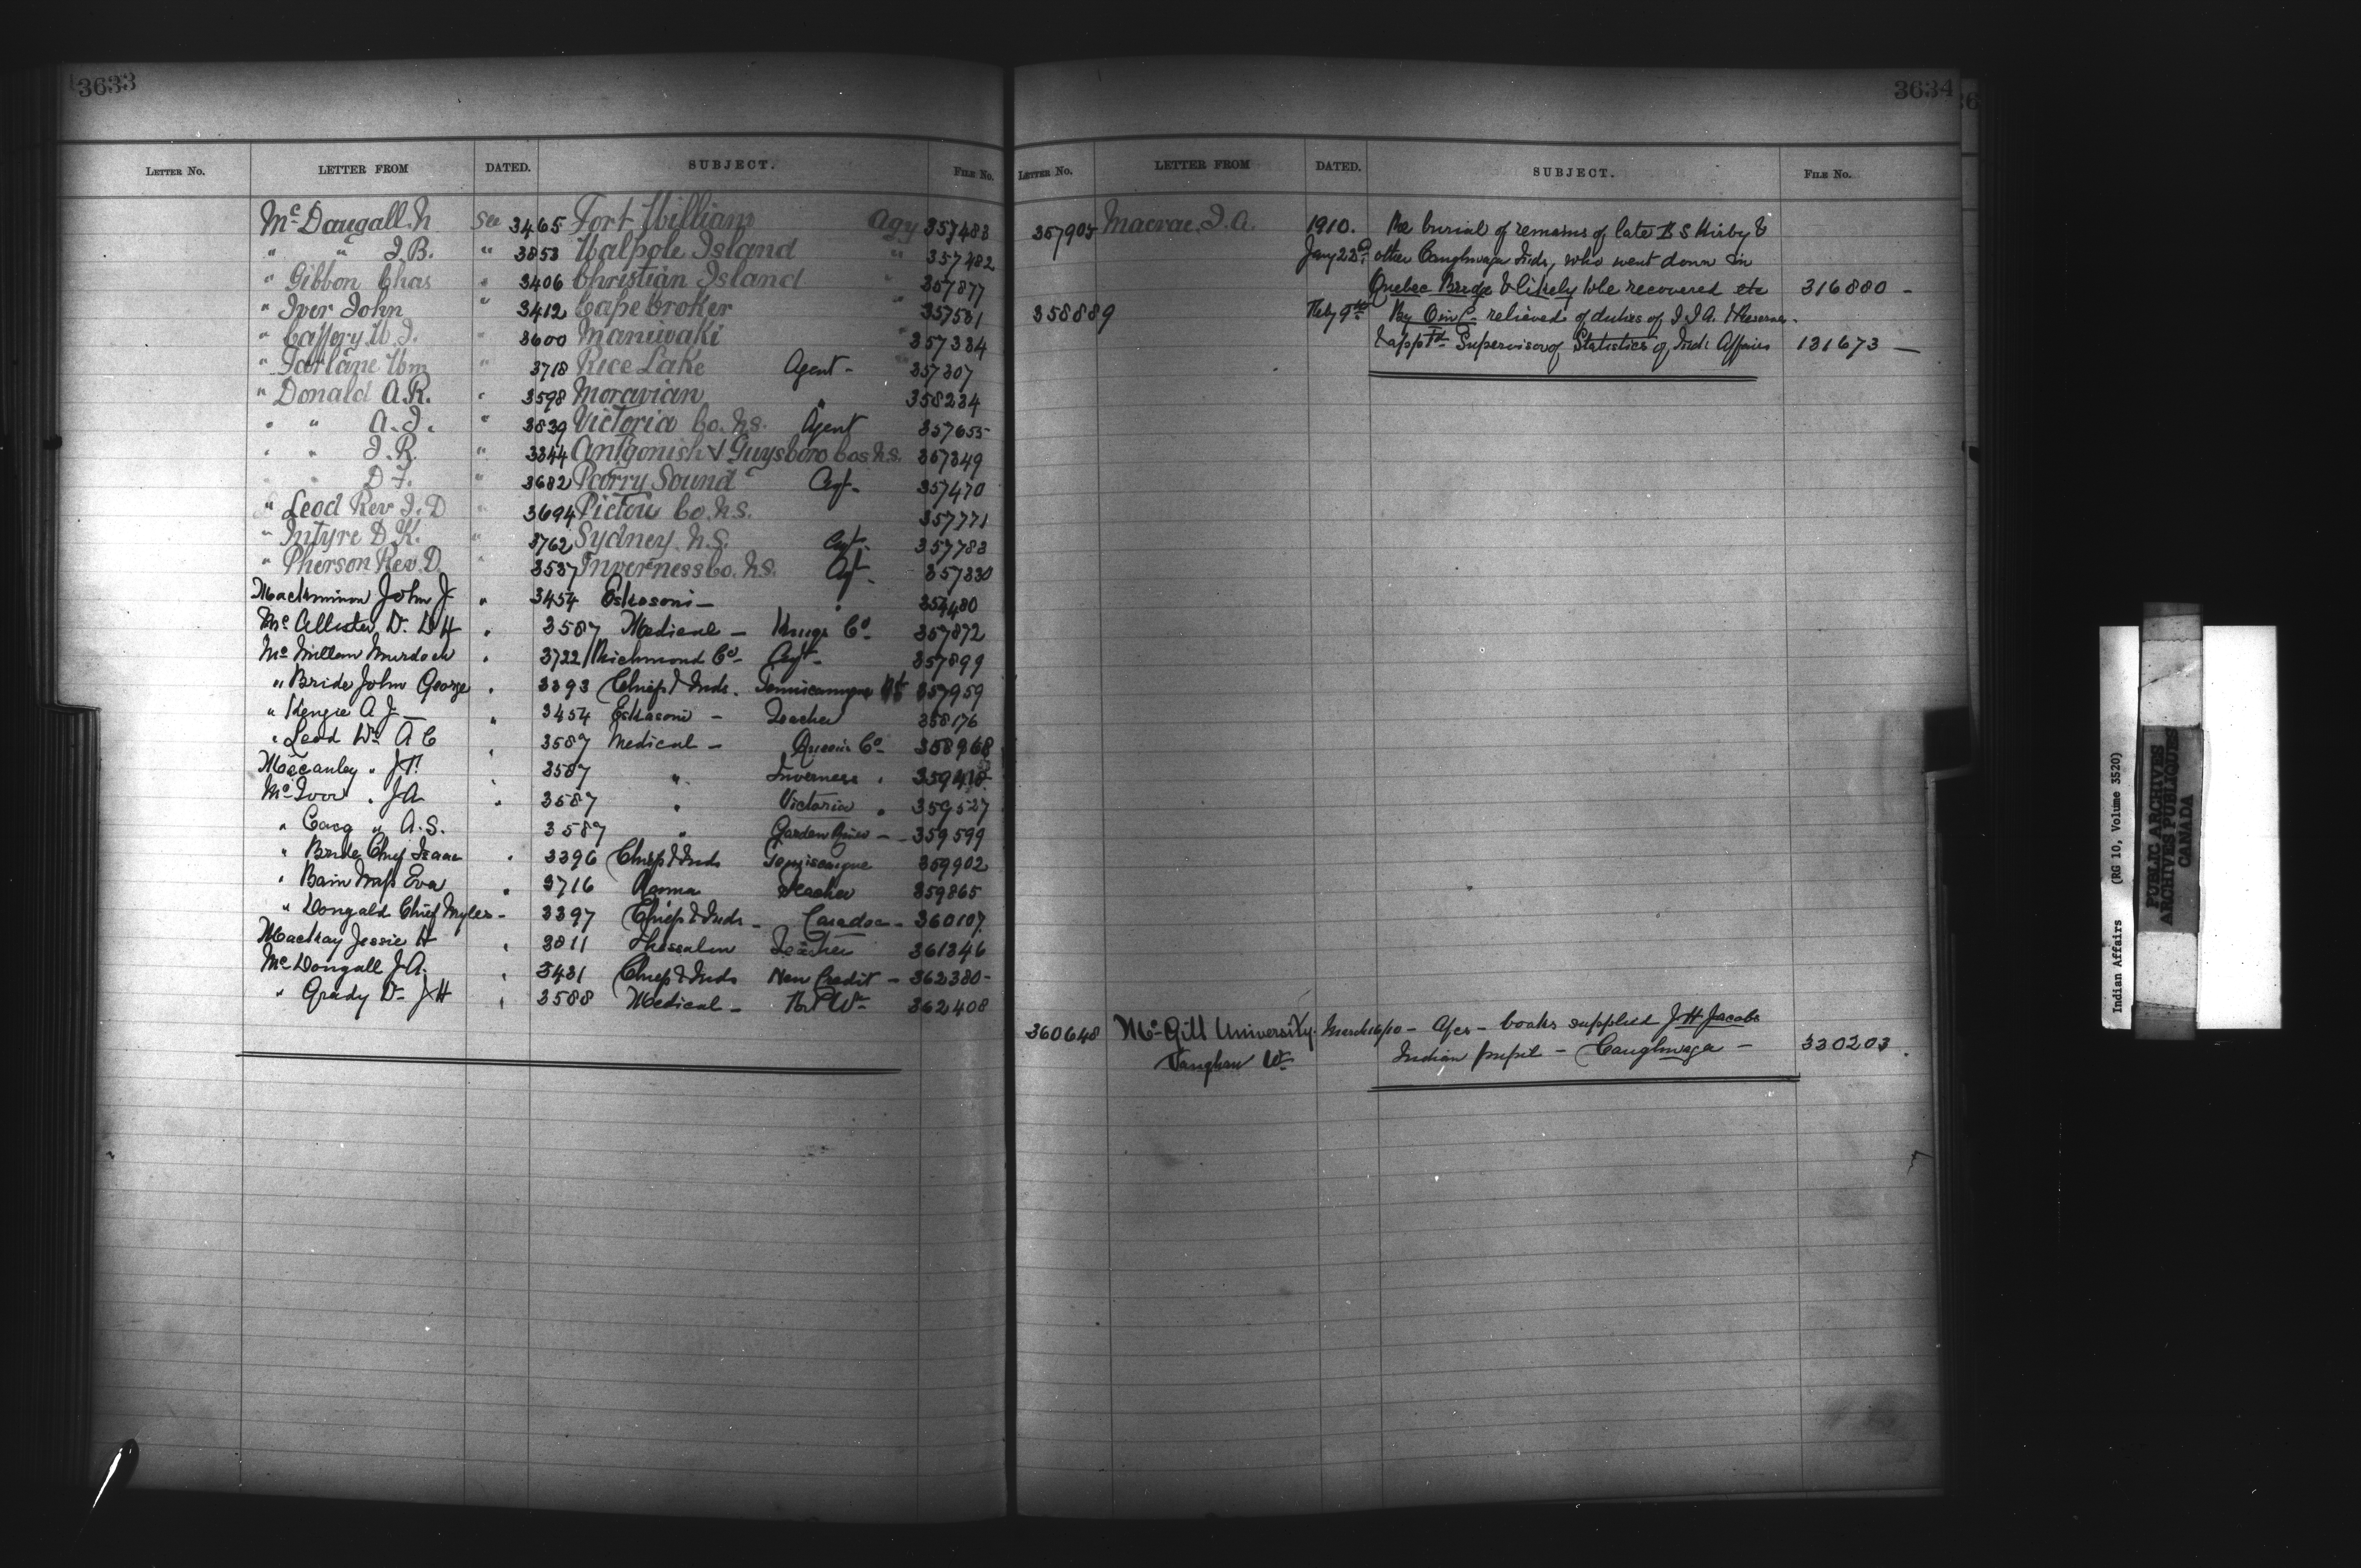 3633
LETTER No. LETTER FROM DATED. SUBJECT. FILE No.
Mc Dougall N See 3465 Fort William Agy 357488
" " J.B. " 3853 Walpole Island " 357482
" Gibbon Chas " 3406 Christian Island " 357877
" Iver John " 3412 Cape Croker " 357531
" Caffery W.J. " 3600 Maniwaki " 357334
" Farlane Wm " 3718 Rice Lake Agent - 357307
" Donald A.R. " 3598 Moravian " 358234
" " A.J. " 3839 Victoria Co. N.S. Agent 357655
" " J.R. " 3344 Antgonish & Guysboro Cos N.S. 357349
" " D F. " 3682 Parry Sound Agt- 357470
" Leod Rev J.D " 3694 Pictou Co. N.S. 357771
" Intyre D.K. " 3762 Sydney N.S. Agt- 357783
" Pherson Rev. D. " 3537 Inverness Co. N.S. Agt- 357330
MacKinnon John J " 3454 Eskasoni - "
Mc Allister Dr. D H " 3587 Medical - Kings Co- 357872
Mc Millan Murdoch " 3722 Richmond Co- Agt- 357899
" Bride John George " 3393 Chief & Inds. 357959
" Kenzie A J - " 3454 Eskasoni - Teacher 358176
" Leod Dr A C " 3587 Medical - Queen's Co- 358968
Macauley " J " 3587 " Inverness "
Mc Ivor " JA " 3587 " Victoria " 359527
" Caig " A.S. 3587 " Garden River - 359599
" Bride Chief Isaac " 3396 Chief & Inds Temiscaigue 359902
" Bain Miss Eva " 3716 Teacher 359865
" Dougald Chief Myles - 3397 Chief & Inds - Caradoc - 360107
MacKay Jessie H " 3811 Thessalon Teacher 361346
Mc Dougall J.A. " 3431 Chief & Inds New Credit - 362380-
" Grady Dr- J H " 3588 Medical - 362408
3634
LETTER No. LETTER FROM DATED. SUBJECT. FILE No.
357905 Macrae, J.A. 1910. Re burial of remains of late B S Kirby &
Jany 22d. other Caughnaga Inds, who went down in
Quebec Bridge & likely to be recovered etc 316880 -
358889 Feby 9th By O in C- relieved of duties of I I A. & Reserves.
& appTd Supervisor of Statistics of Indi Affairs 131673 -
360648 Mc Gill University. March 16/10 - Ack - books supplied J H Jacobs
Vaughan W- Indian pupil - Caughnaga - 330203.
Indian Affairs (RG 10, Volume 3520)
PUBLIC ARCHIVES
ARCHIVES PUBLIQUES
CANADA